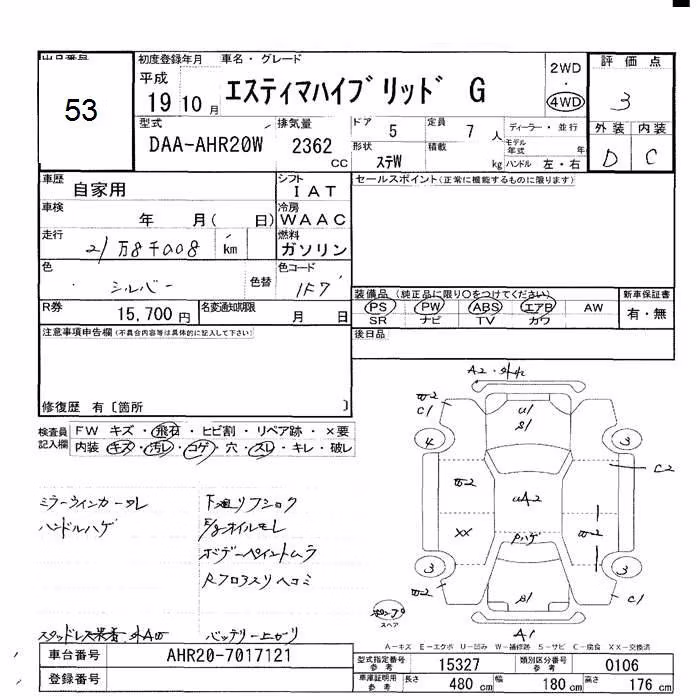 出品番号 初度登録年月 車名・グレード 2WD・4WD 評価点
53 平成 19 10月 エスティマハイブリッド G 3
型式 排気量 ドア 定員 ディーラー・並行 外装 内装
DAA-AHR20W 2362 CC 5 7人 モデル年式 年 D C
形状 積載 ステW kg ハンドル 左・右
車歴 自家用 シフト IAT セールスポイント(正常に機能するものに限ります)
車検 年 月( 日) 冷房 WAAC
走行 21万8千008 km 燃料 ガソリン
色 シルバー 色替 色コード 1F7
R券 15,700円 名変通知期限 月 日
装備品(純正品に限り○をつけてください) 新車保証書
PS PW ABS エアB AW 有・無
SR ナビ TV カワ
注意事項申告欄(不具合内容等は具体的に記入して下さい) 後日品
修復歴 有〔箇所 〕
検査員記入欄 FW キズ・飛石・ヒビ割・リペア跡・×要
内装 キズ・汚レ・コゲ・穴・スレ・キレ・破レ
ミラーウインカーワレ
ハンドルハゲ
下廻リフショク
E/gオイルモレ
ボデーペイントムラ
スタッドレス装着
バッテリー上がり
A2
C1
U1
S1
4
3
C2
UA2
XX
Pハゲ
3
3
S1
C1
A1
スペア
A-キズ E-エクボ U-凹み W-補修跡 S-サビ C-腐食 XX-交換済
車台番号 AHR20-7017121
登録番号
型式指定番号 参考 15327 類別区分番号 参考 0106
車庫証明用 参考 長さ 480cm 幅 180cm 高さ 176cm